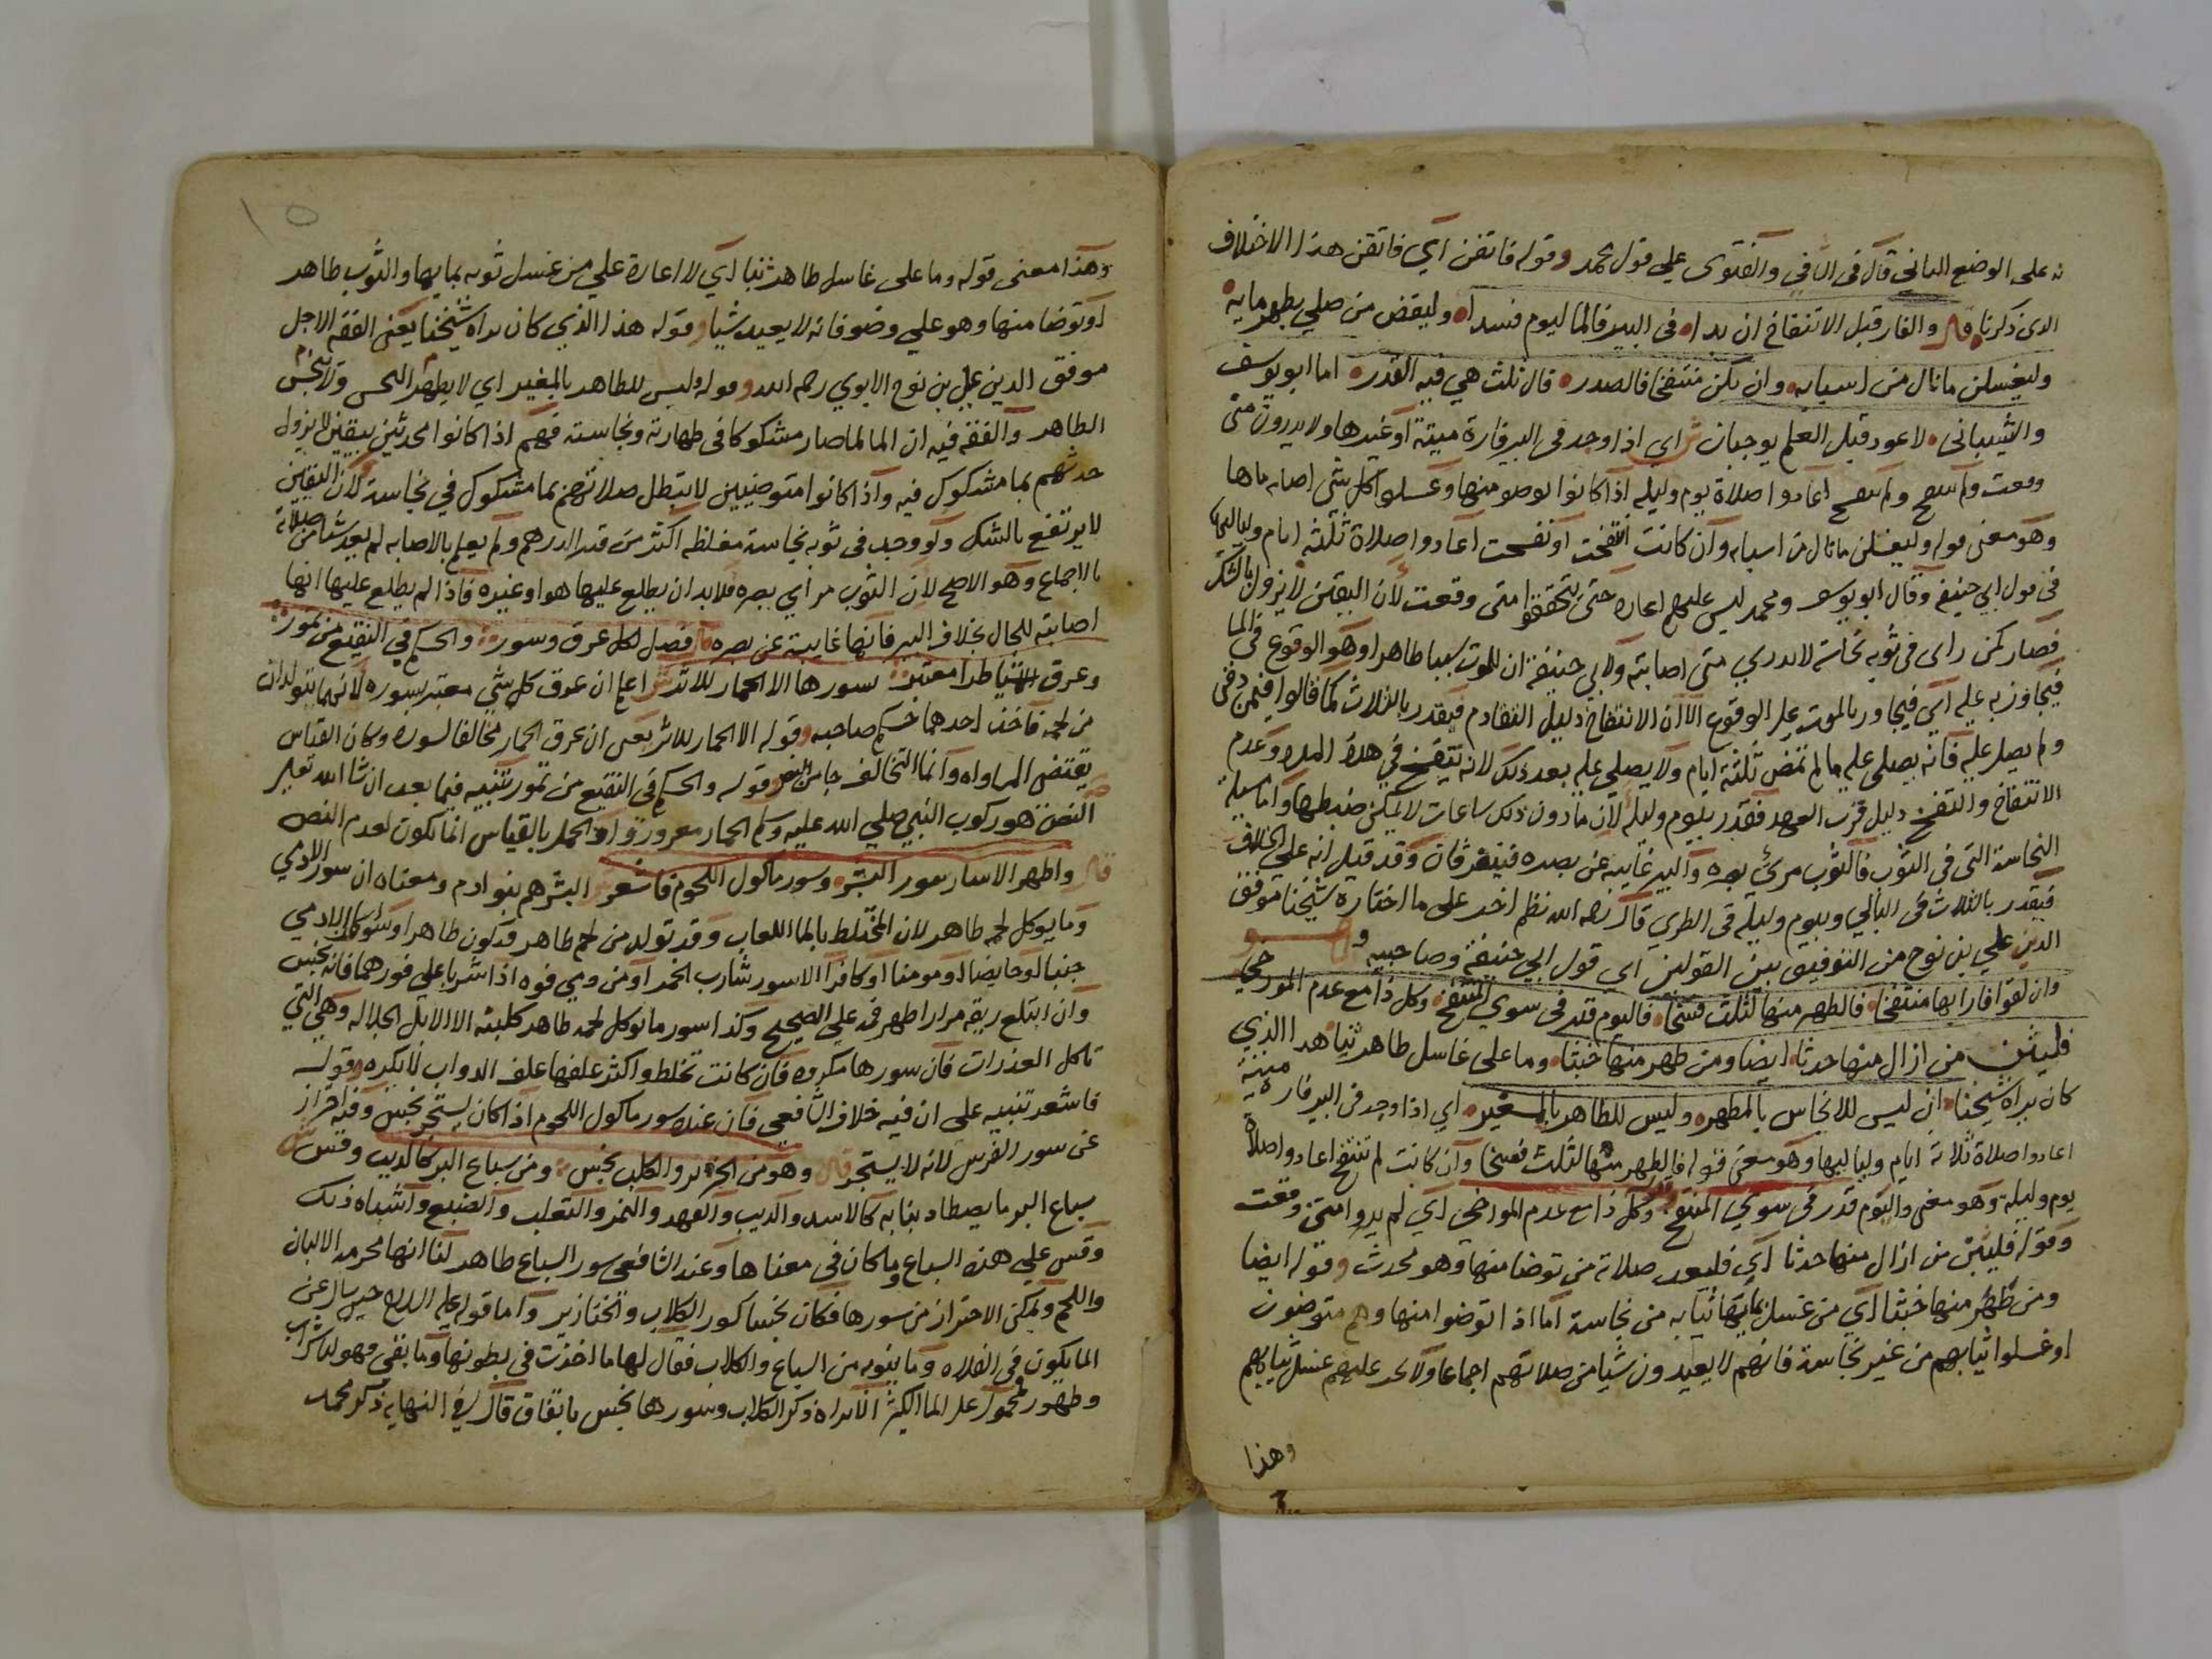 نه على الوضع الثاني قال في الكافي والفتوى على قول محمد وقوله فاتقن اي فاتقن هذا الاختلاف
الذي ذكرنا قال والفار قبل الانتفاخ ان بدا في البير فالما ليوم فسدا وليقض من صلي بطهر مايه
وليغسلن ما نال من اسبابه وان يكن منتفخا فالصدر قال ثلث هي فيه القدر اما ابو يوسف
والشيباني لا عود قبل العلم يوجبان ش اي اذا وجد في البير فارة ميتة او غيرها ولا يدرون متى
وقعت ولم تنتفخ ولم تتفسخ اعادوا صلاة يوم وليلة اذا كانوا توضوا منها وغسلوا كل شي اصابه ماها
وهو معنى قوله وليغسلن ما نال من اسبابه وان كانت انتفخت او تفسخت اعادوا صلاة ثلثة ايام ولياليها
في قول ابي حنيفة وقال ابو يوسف ومحمد ليس عليهم اعادة حتى يتحققوا متى وقعت لان اليقين لا يزول بالشك
فصار كمن راى في ثوبه نجاسة لا يدري متى اصابته ولابي حنيفة ان للموت سببا ظاهرا وهو الوقوع في الما
فيحاذر به عليه اي فيحاور بالموت على الوقوع الا ان الانتفاخ دليل التقادم فيقدر بالثلاث كما قالوا فيمن دفن
ولم يصل عليه فانه يصلى عليه ما لم تمض ثلثة ايام ولا يصلي عليه بعد ذلك لانه يتفسخ في هذه المدة وعدم
الانتفاخ والتفسخ دليل قرب العهد فقدر بيوم وليلة لان ما دون ذلك ساعات لا يمكن ضبطها واما مسيلة
النجاسة التي في الثوب فالثوب مرئي بصره والبير غايبة عن بصره فيتفرقان وقد قيل انه على الخلاف
فيقدر بالثلاث في البالي وبيوم وليلة في الطري قال رحمه الله نظم اخر على ما اختاره شيخنا موفق
الدين علي بن نوح من التوفيق بين القولين اي قول ابي حنيفة وصاحبيه
وان لقوا فارا بها منتفخا فالطهر منها لثلث فسخا فاليوم قدر في سوى المنتفخ وكل ذا مع عدم المورخ
فليثن من ازال منها حدثا ايضا ومن طهر منها خبثا وما على غاسل طاهر ثنيا هذا الذي
كان يراه شيخنا ان ليس للانجاس بالمطهر وليس للطاهر بالمغير اي اذا وجد في البير فارة ميتة
اعادوا صلاة ثلاثة ايام ولياليها وهو معنى قوله فالطهر منها لثلث فسخا وان كانت لم تنتفخ اعادوا صلاة
يوم وليلة وهو معنى واليوم قدر في سوى المنتفخ وكل ذا مع عدم المورخ اي لم يدروا متى وقعت
وقوله فليثن من ازال منها حدثا اي فليعد صلاته من توضا منها وهو محدث وقوله ايضا
ومن طهر منها خبثا اي من غسل بمايها ثيابه من نجاسة اما اذا توضوا منها وهم متوضون
او غسلوا ثيابهم من غير نجاسة فانهم لا يعيدون شيا من صلاتهم اجماعا ولا عليهم غسل ثيابهم
وهذا
١٥
وهذا معنى قوله وما على غاسل طاهر ثنيا اي لا اعادة علي من غسل ثوبه بمايها والثوب طاهر
او توضا منها وهو علي وضو فانه لا يعيد شيا وقوله هذا الذي كان يراه شيخنا يعني الفقه الاجل
موفق الدين علي بن نوح الابوي رحمه الله وقوله وليس للطاهر بالمغير اي لا يطهر النجس ولا ينجس
الطاهر والفقه فيه ان الما لما صار مشكوكا في طهارته ونجاسته فهم اذا كانوا محدثين بيقين لا يزول
حدثهم بما مشكوك فيه واذا كانوا متوضيين لا تبطل صلاتهم بما مشكوك في نجاسته لان اليقين
لا يرتفع بالشك ولو وجد في ثوبه نجاسة مغلظة اكثر من قدر الدرهم ولم يعلم بالاصابة لم يعد شيا من صلاته
بالاجماع وهو الاصح لان الثوب مراي بصره فلا بد ان يطلع عليها هو او غيره فاذا لم يطلع عليها انها
اصابته للحال بخلاف البير فانها غايبة عن بصره قال فصل لكل عرق وسورة والحكم في النقيع من تمورة
وعرق طرا معتبر سورها الا الحمار للاثر ش اعلم ان عرق كل شي معتبر بسوره لانهما يتولدان
من لحمه فاخذ احدهما حكم صاحبه وقوله الا الحمار للاثر يعني ان عرق الحمار مخالفا لسوره وكان القياس
يقتضي المساواة وانما التخالف جا من النص وقوله والحكم في النقيع من تمور تنبيه فيما بعد ان شا الله تعالى
النص هو ركوب النبي صلي الله عليه وسلم الحمار معروريا والحكم بالقياس انما يكون لعدم النص
قال واطهر الاسار سور البشر وسور ماكول اللحوم فاشعر البشر هم بنو ادم ومعناه ان سور الادمي
وما يوكل لحمه طاهر لان المختلط بالما اللعاب وقد تولد من لحم طاهر فيكون طاهرا وسواء كان الادمي
جنبا او حايضا او مومنا او كافرا الا سور شارب الخمر او من دمي فوه اذا شربا على فورهما فانه نجس
وان ابتلع ريقه مرارا طهر فمه على الصحيح وكذا سور ما يوكل لحمه طاهر كلبنه الا الابل الجلالة وهي التي
تاكل العذرات فان سورها مكروه فان كانت تخلط واكثر علفها علف الدواب لا يكره وقوله
فاشعر تنبيه على ان فيه خلاف الشافعي فان عنده سور ماكول اللحوم اذا كان يستجر نجس وفيه احتراز
عن سور الفرس لانه لا يستجر قال وهو من الخنزير والكلب نجس ومن سباع البر كالذيب وقس ش
سباع البر ما يصطاد بنابه كالاسد والذيب والفهد والنمر والثعلب والضبع واشباه ذلك
وقس علي هذه السباع وما كان في معناها وعند الشافعي سور السباع طاهر لنا انها محرمة الالبان
واللحم ويمكن الاحتراز من سورها فكان نجسا كسور الكلاب والخنازير واما قوله عليه السلام حين سال عن
الما يكون في الفلاة وما ينوبه من السباع والكلاب فقال لها ما اخذت في بطونها وما بقي فهو لنا شراب
وطهور محمول على الما الكثير الا تراه ذكر الكلاب وسورها نجس باتفاق قال في النهاية ذكر محمد